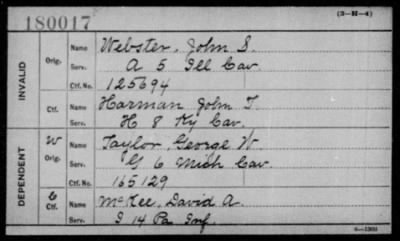 180017
(3-H-4)
INVALID
Orig. Name Webster, John S.
Serv. A 5 Ill Cav.
Ctf. No. 125694
Ctf. Name Harman John T.
Serv. H 8 Ky Cav.
DEPENDENT
W Orig. Name Taylor, George W.
Serv. G 6 Mich Cav.
Ctf. No. 165129
& Ctf. Name McKee, David A.
Serv. I 14 Pa Inf.